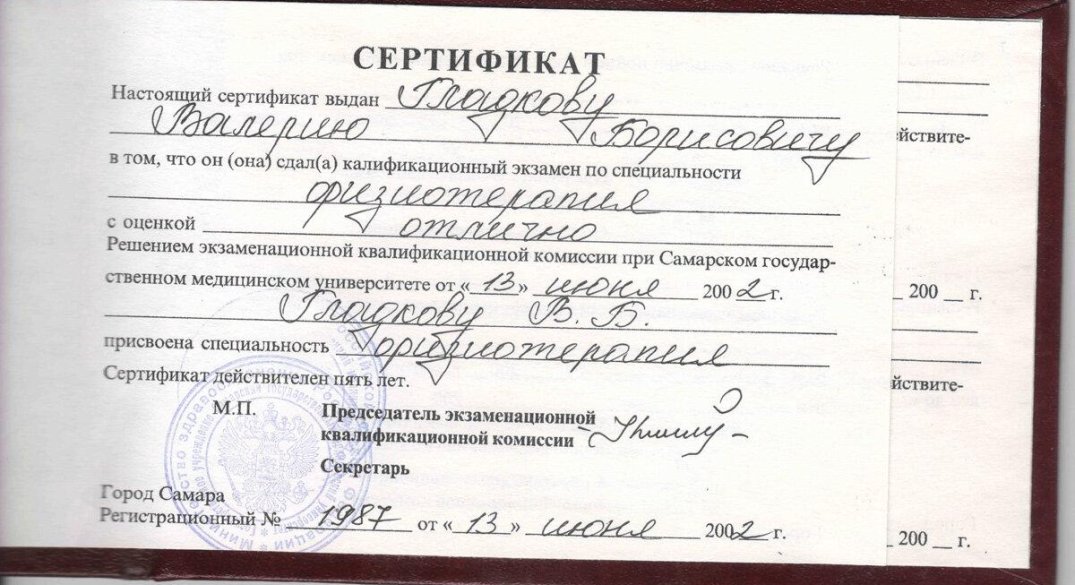 СЕРТИФИКАТ
Настоящий сертификат выдан Гладкову
Валерию Борисовичу
в том, что он (она) сдал(а) калификационный экзамен по специальности
физиотерапия
с оценкой отлично
Решением экзаменационной квалификационной комиссии при Самарском государ-
ственном медицинском университете от «13» июня 2002 г.
Гладкову В. Б.
присвоена специальность физиотерапия
Сертификат действителен пять лет.
М.П. Председатель экзаменационной
квалификационной комиссии
Секретарь
Город Самара
Регистрационный № 1987 от «13» июня 2002 г.
йствите-
200 __ г.
йствите-
200 __ г.